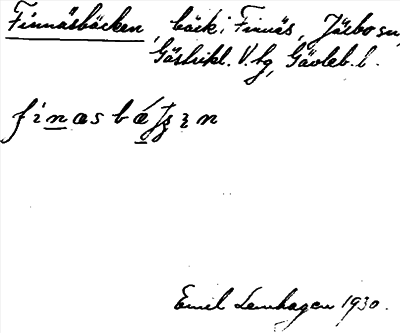 Finnäsbäcken, bäck i Finnäs, Järbo sn,
Gästrikl. V. tg, Gävleb. l.
finasbä
Emil Lenhagen 1930.